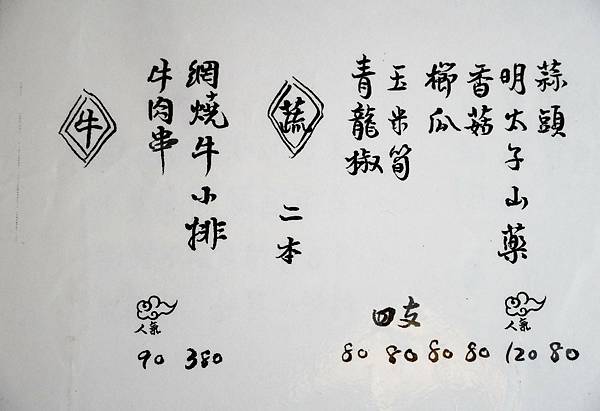 蒜頭 80
明太子山藥 人氣 120
香菇 80
櫛瓜 80
玉米筍 四支 80
青龍椒 80
蔬 二本
網燒牛小排 380
牛肉串 人氣 90
牛